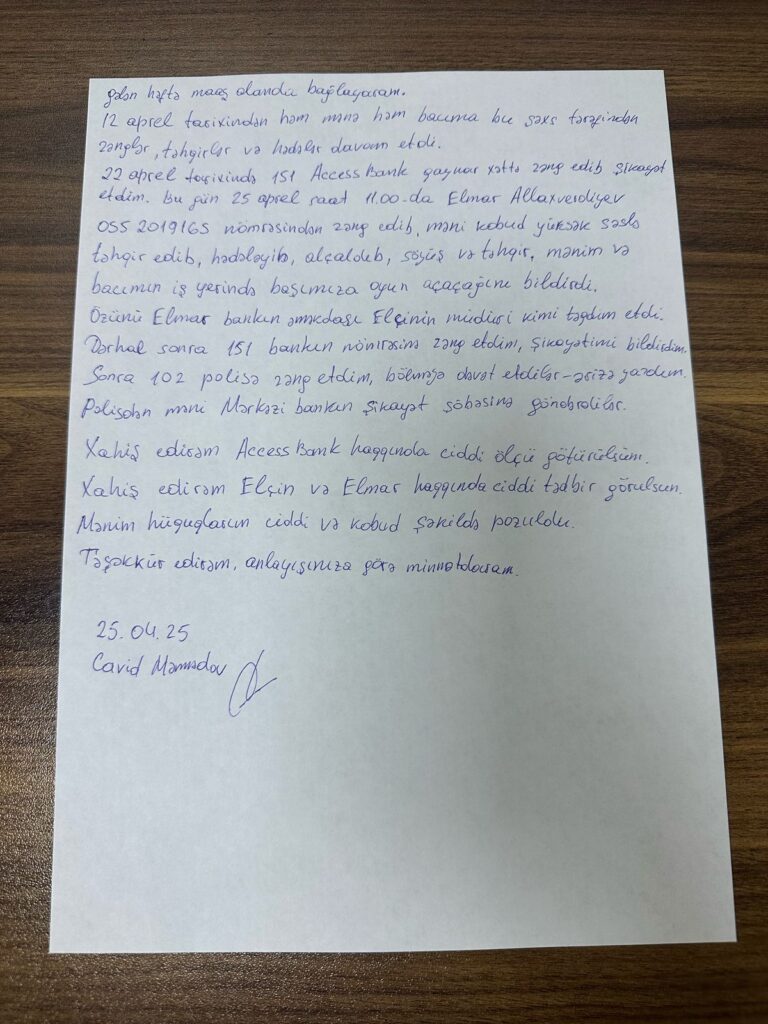 gələn həftə maaş olanda bağlayaram.
12 aprel tarixindən həm mənə həm bacıma bu şəxs tərəfindən
zənglər, təhqirlər və hədələr davam etdi.
22 aprel tarixində 151 AccessBank qaynar xəttə zəng edib şikayət
etdim. Bu gün 25 aprel saat 11.00-da Elmar Allaxverdiyev
055 2019165 nömrəsindən zəng edib, məni kobud yüksək səslə
təhqir edib, hədələyib, alçaldıb, söyüş və təhqir, mənim və
bacımın iş yerində başımıza oyun açacağını bildirdi.
Özünü Elmar bankın əməkdaşı Elçinin müdiri kimi təqdim etdi.
Dərhal sonra 151 bankın nömrəsinə zəng etdim, şikayətimi bildirdim.
Sonra 102 polisə zəng etdim, bölməyə dəvət etdilər-ərizə yazdım.
Polisdən məni Mərkəzi bankın şikayət şöbəsinə göndərdilər.
Xahiş edirəm AccessBank haqqında ciddi ölçü götürülsün.
Xahiş edirəm Elçin və Elmar haqqında ciddi tədbir görülsün.
Mənim hüquqlarım ciddi və kobud şəkildə pozuldu.
Təşəkkür edirəm, anlayışınıza görə minnətdaram.
25.04.25
Cavid Məmmədov